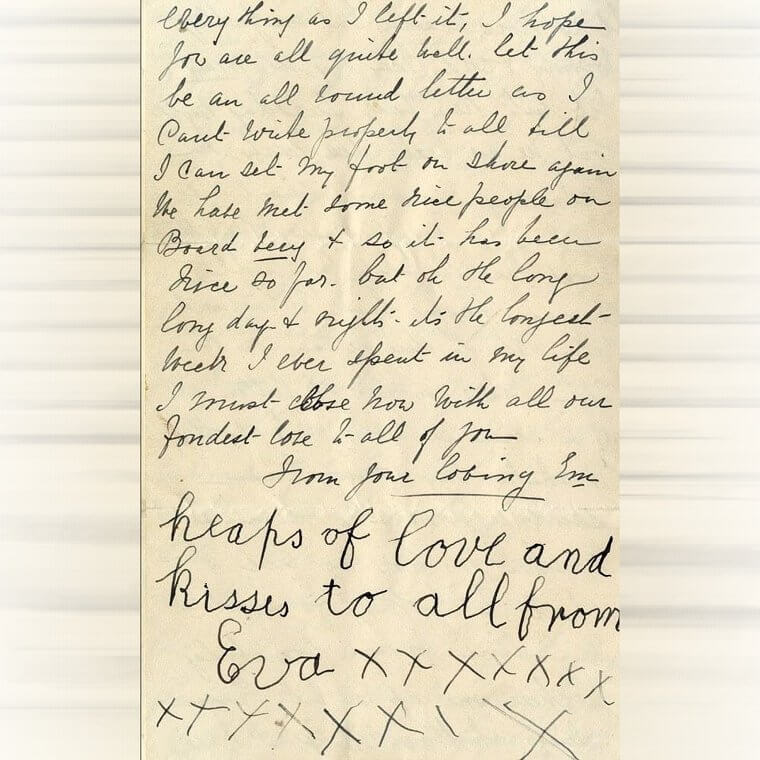 everything as I left it, I hope
you are all quite well. let this
be an all round letter as I
Cant write properly to all till
I can set my foot on shore again
We have met some nice people on
Board &amp; so it has been
nice so far. but oh the long
long day &amp; nights. its the longest
Week I ever spent in my life
I must close now with all our
fondest love to all of you
From your loving Em
heaps of love and
kisses to all from
Eva x x x x x x x
x x x x x x \ x